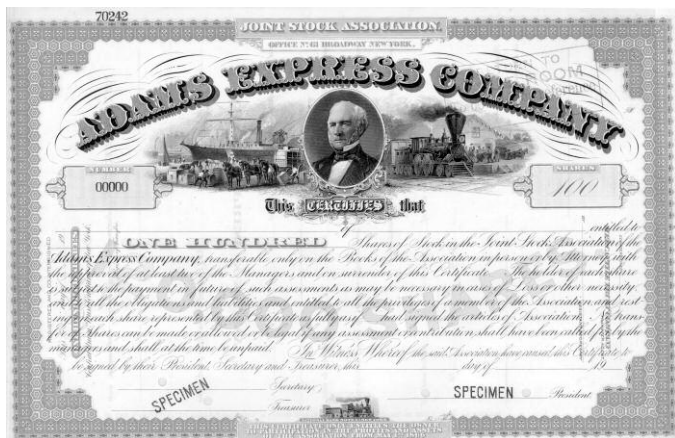 70242
JOINT STOCK ASSOCIATION.
OFFICE No. 61 BROADWAY NEW YORK.
ADAMS EXPRESS COMPANY
NUMBER
00000
SHARES
100
This CERTIFIES that
of entitled to
ONE HUNDRED Shares of Stock in the Joint Stock Association of the
Adams Express Company, transferable only on the Books of the Association in person or by Attorney with
the approval of at least two of the Managers and on surrender of this Certificate. The holder of each share
is subject to the payment in future of such assessments as may be necessary in cases of Loss or other necessity
and all the obligations and liabilities and entitled to all the privileges of a member of the Association and rest-
ing on each share represented by this Certificate as fully as if had signed the articles of Association. No trans-
fer of Shares can be made or allowed or be legal if any assessment or contribution shall have been called for by the
managers and shall at the time be unpaid. In Witness Whereof the said Association have caused this Certificate to
be signed by their President, Secretary and Treasurer, this day of 19
SPECIMEN Secretary
SPECIMEN President
Treasurer